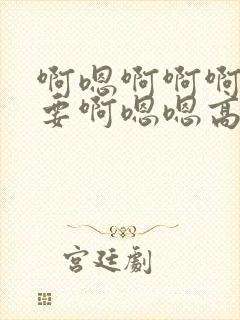 啊嗯啊啊啊
要啊嗯嗯高
宫廷劇